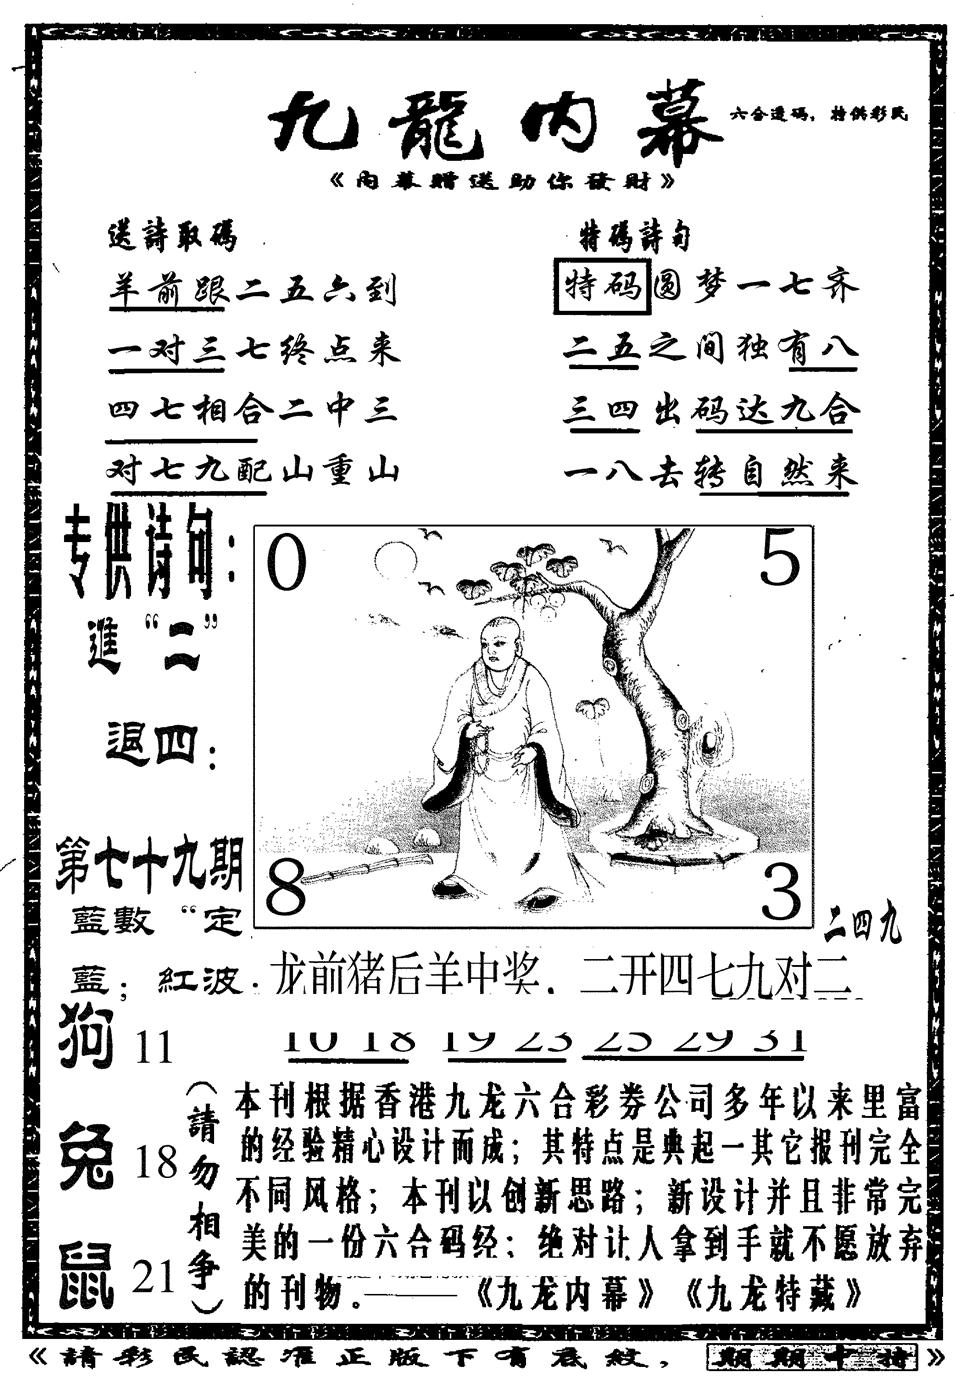 九龍内幕
六合透碼，特供彩民
《内幕贈送助你發財》
送詩取碼
羊前跟二五六到
一对三七终点来
四七相合二中三
对七九配山重山
特碼詩句
特码圆梦一七齐
二五之间独有八
三四出码达九合
一八去转自然来
专供诗句：
進“二”
退四：
第七十九期
藍數“定
藍；紅波.
0
5
8
3
二四九
龙前猪后羊中奖．二开四七九对二
狗 11
兔 18
鼠 21
10 18 19 23 25 29 31
（請勿相争）
本刊根据香港九龙六合彩券公司多年以来里富
的经验精心设计而成；其特点是典起一其它报刊完全
不同风格；本刊以创新思路；新设计并且非常完
美的一份六合码经；绝对让人拿到手就不愿放弃
的刊物。——《九龙内幕》《九龙特藏》
《請彩民認准正版下有底紋，期期中特》